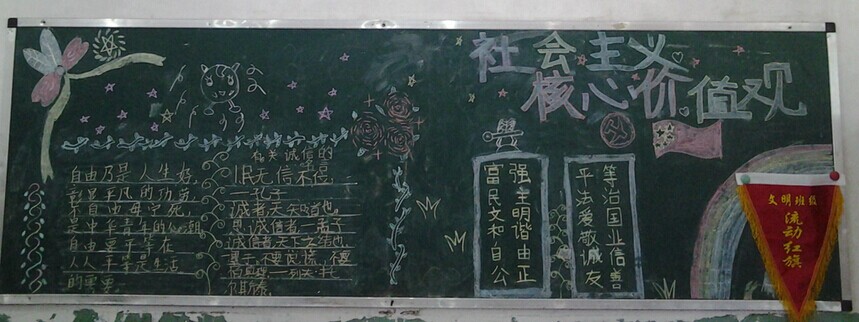 社会主义
核心价值观
自由乃是人生好,
彰显平凡的功劳,
不自由毋宁死,
是中华青年的心潮
自由要平等在
人人平等是生活
的需要
有关诚信的
民无信不
—孔子
诚者天之道也,
思诚信者—孟子
诚信者天下之结也
墨子,不要说谎,不要
怕真理—列夫·托
尔斯泰.
富强
民主
文明
和谐
自由
公正
平等
法治
爱国
敬业
诚信
友善
文明班级
流动红旗